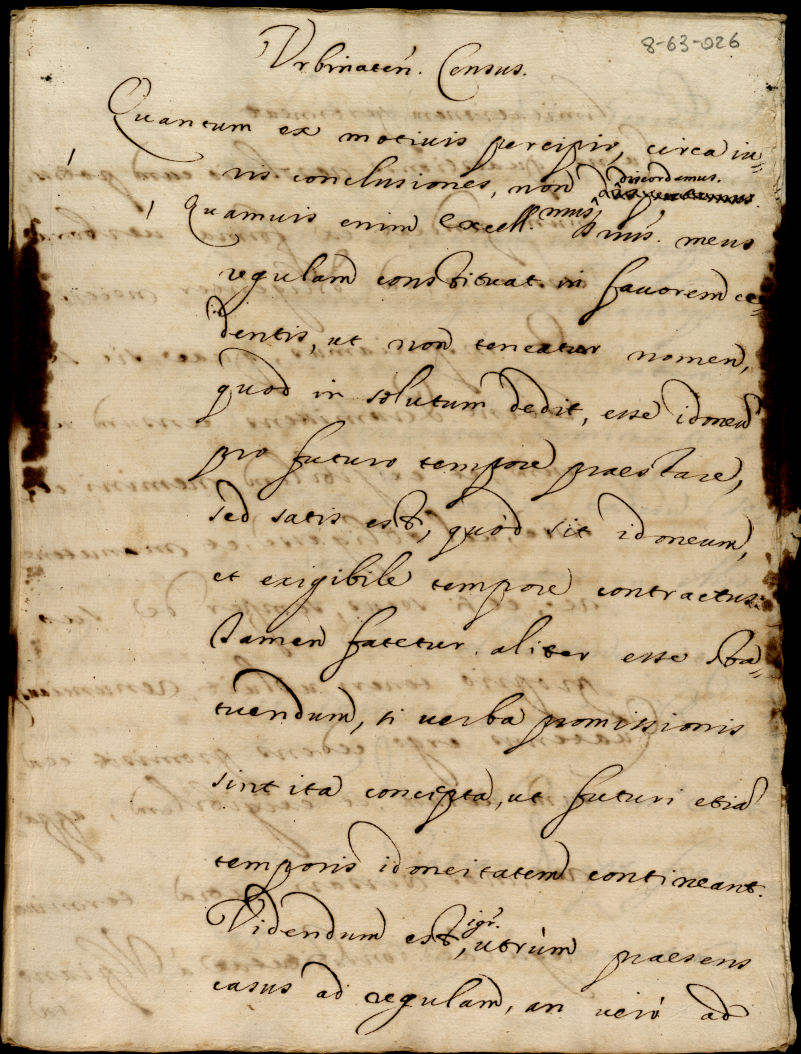 8-63-026
Vrbinaten̄. Census.
Quantum ex motiuis percipio, circa iu=
ris conclusiones, non discordamus.
Quamuis enim Excell.mus Dnūs. meus
regulam constituat in fauorem ce=
dentis, ut non teneatur nomen,
quod in solutum dedit, esse idoneū
pro futuro tempore praestare,
sed satis est, quòd sit idoneum,
et exigibile tempore contractus:
Tamen fatetur aliter esse sta=
tuendum, si uerba promissionis
sint ita concepta, ut futuri etiā
temporis idoneitatem contineant.
Videndum est igr̄., utrùm praesens
casus ad regulam, an uerò ad